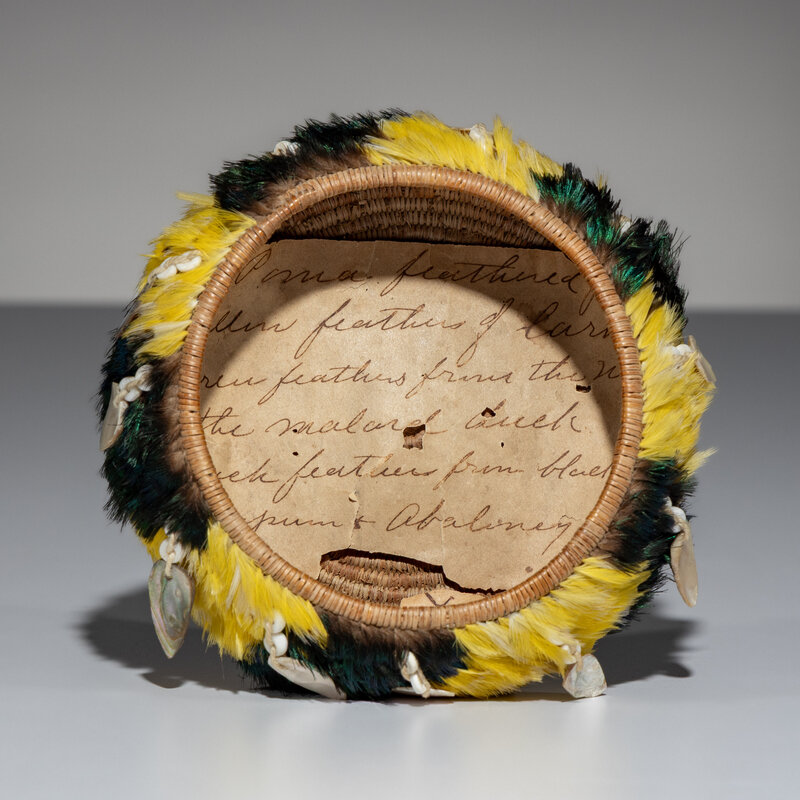 Poma feathered
feathers of Car
feathers from the N
the malard duck
feathers from blac
& Abaloney